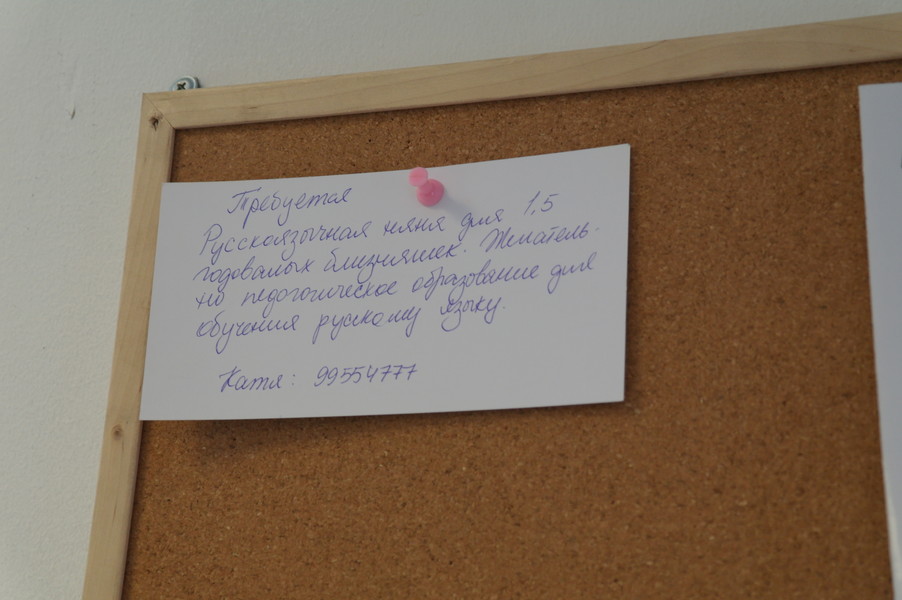 Требуется
Русскоязычная няня для 1,5
годовалых близняшек. Желатель-
но педогогическое образование для
обучения рускому языку.
Катя: 99554777